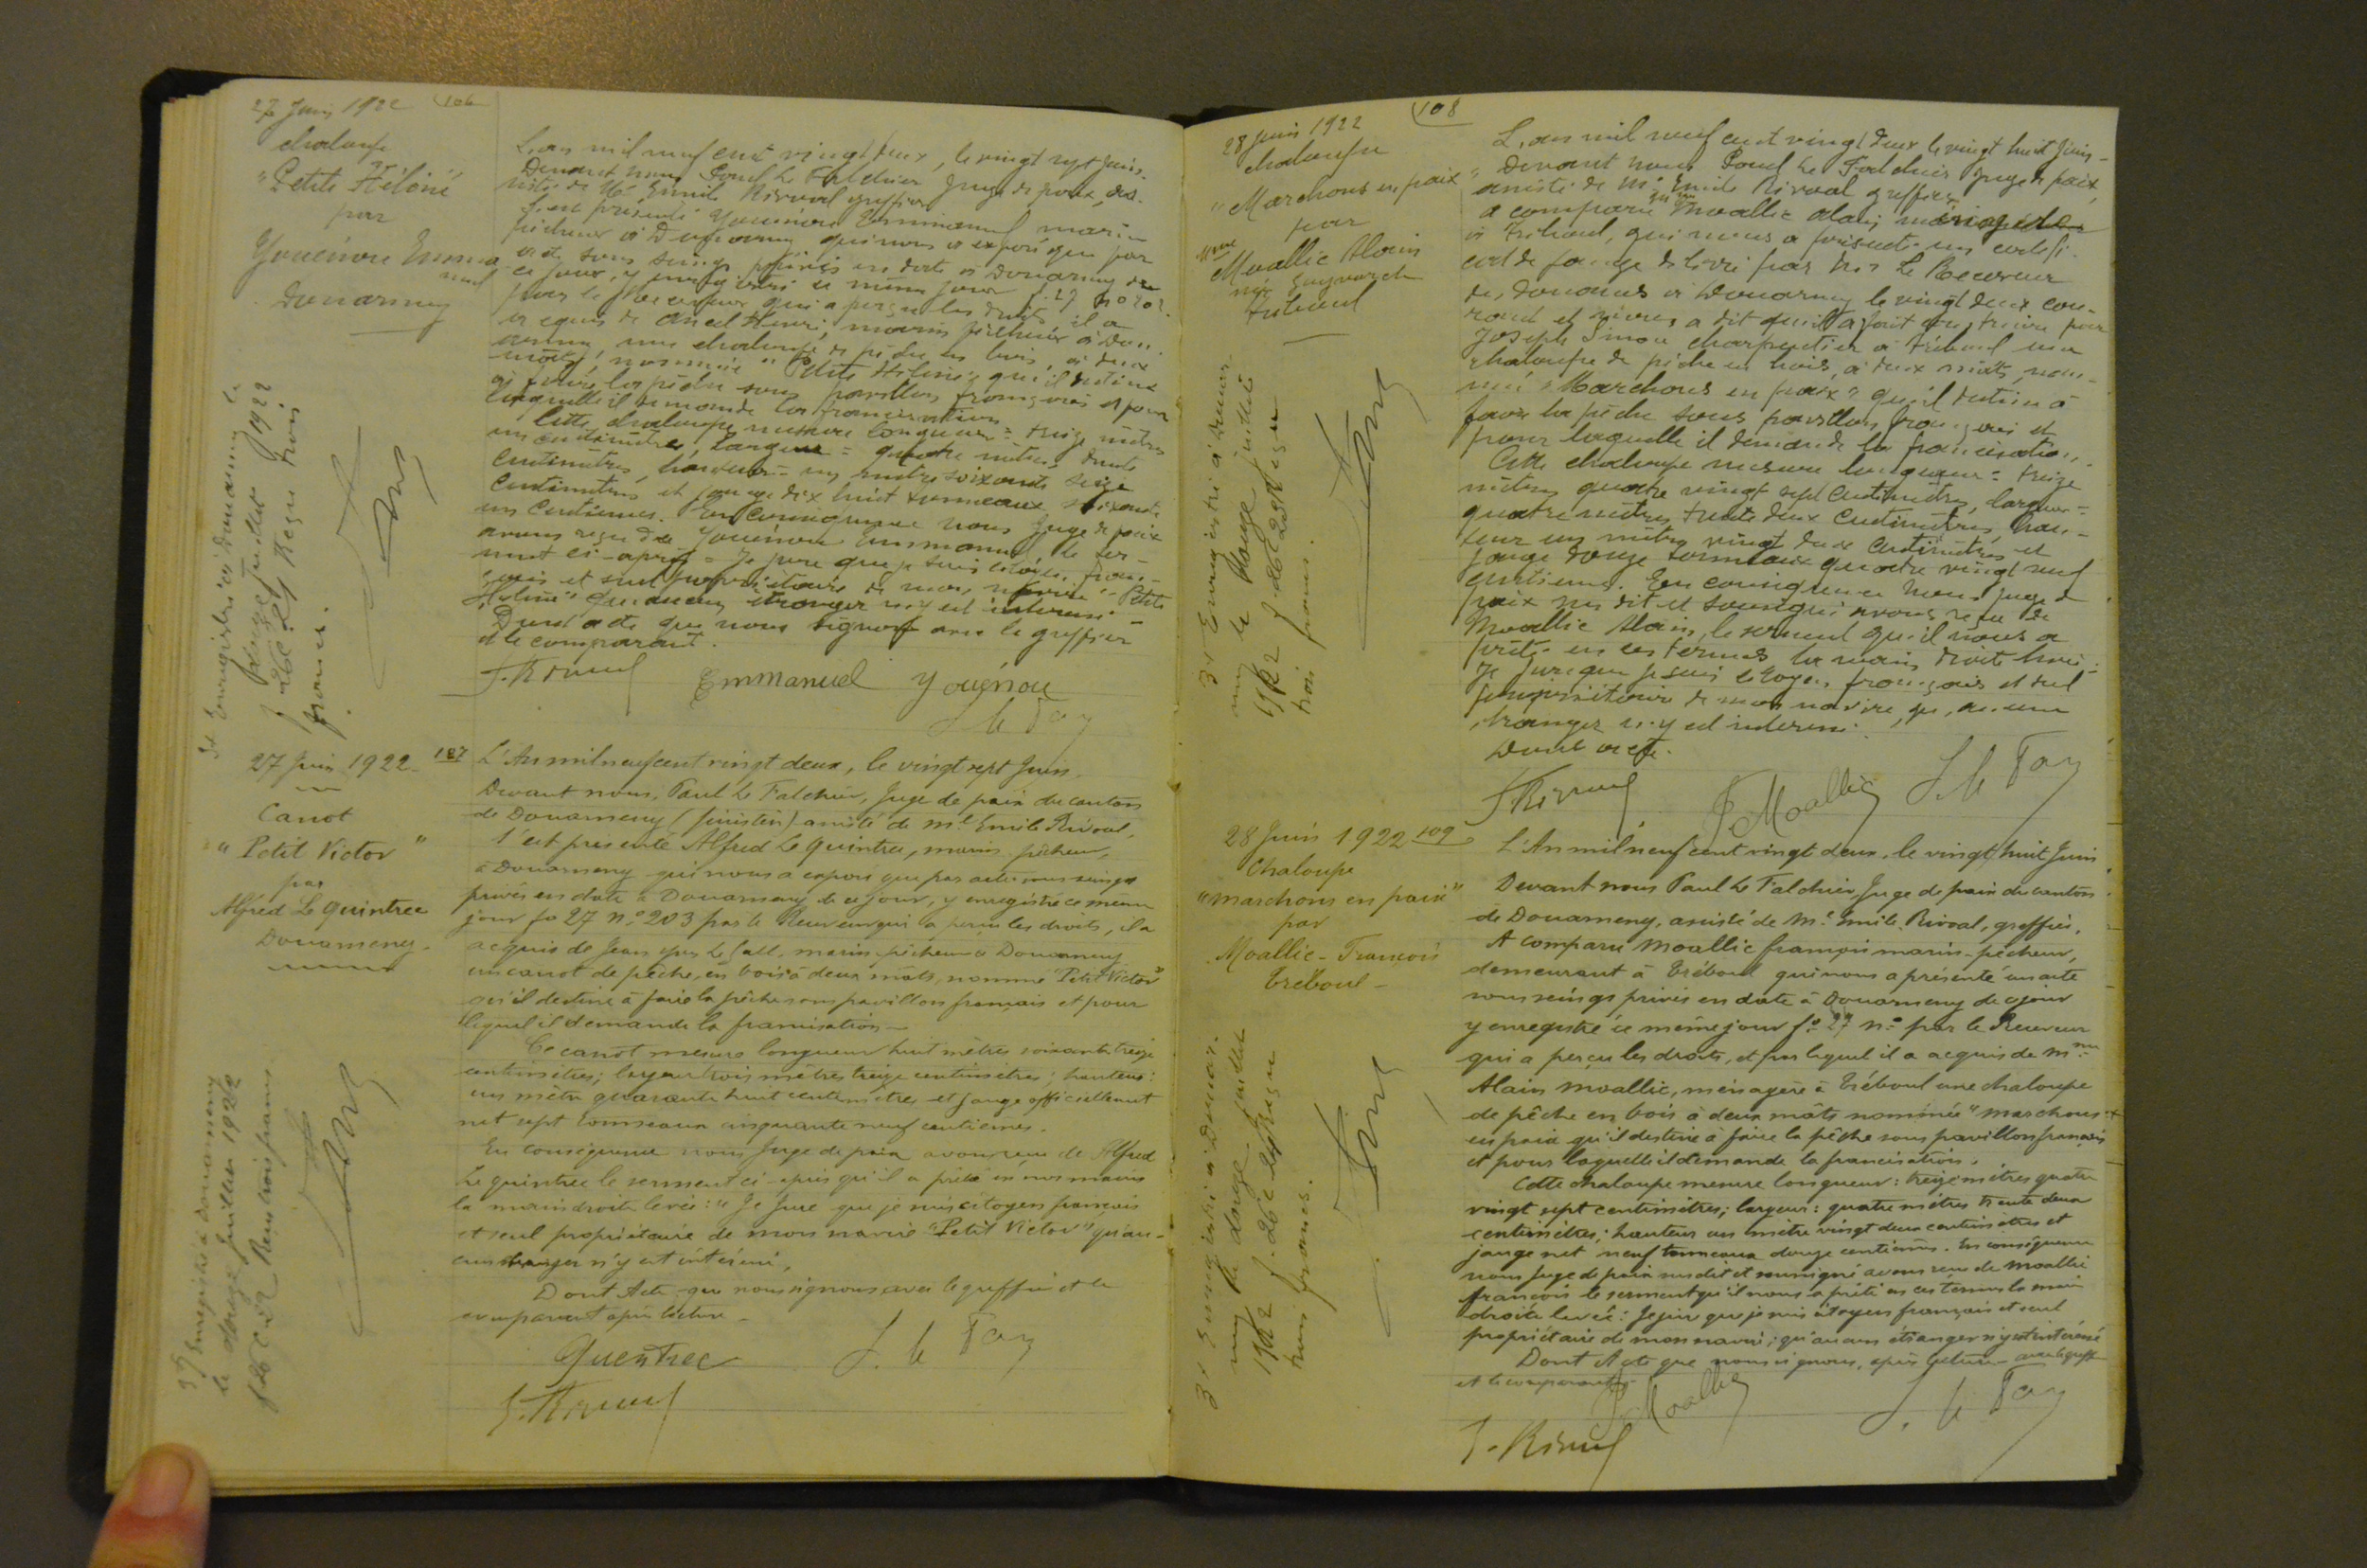 27 Juin 1922 106
chaloupe
"Petite Hélène"
par
Youénou Emma
nuel
Douarnenez
L'an mil neuf cent vingt deux, le vingt sept juin.
Devant nous Paul Le Falchier Juge de paix, as-
sisté de Me Emile Rivoal greffier
s'est présenté Youénou Emmanuel marin
pêcheur à Douarnenez qui nous a exposé que par
acte sous seings privés en date à Douarnenez de
ce jour, y enregistré ce même jour f. 27 no 202
par le Receveur qui a perçu les droits il a
acquis de Henri, marin pêcheur à Dou
une chaloupe de pêche en bois, à deux
mâts, nommée "Petite Hélène" qu'il destine
à faire la pêche sous pavillon français et pour
laquelle il demande la francisation.
Cette chaloupe mesure longueur = treize mètres
un centimètre, largeur = quatre mètres trente
centimètres, hauteur = un mètre soixante seize
centimètres et jauge dix huit tonneaux soixante
un centièmes. En conséquence nous Juge de paix
avons reçu de Youénou Emmanuel, le ser-
ment ci-après = Je jure que je suis citoyen fran-
çais et seul propriétaire de mon navire "Petite
Hélène" qu'aucun étranger n'y est intéressé.
Dont acte que nous signons avec le greffier
et le comparant.
E. Rivoal Emmanuel Youénou
Enregistré à Douarnenez le
douze juillet 1922
f 26 c Reçu trois
francs.
27 Juin 1922 107
Canot
"Petit Victor"
par
Alfred Le Quintrec
Douarnenez
L'An mil neuf cent vingt deux, le vingt sept Juin.
Devant nous, Paul Le Falchier, Juge de paix du canton
de Douarnenez (Finistère) assisté de Me Emile Rivoal,
s'est présenté Alfred Le Quintrec, marin pêcheur,
à Douarnenez qui nous a exposé que par acte sous seings
privés en date à Douarnenez de ce jour, y enregistré ce même
jour fo 27 No 203 par le Receveur qui a perçu les droits, il a
acquis de Jean Yves Le Gall, marin pêcheur à Douarnenez
un canot de pêche, en bois à deux mâts, nommé "Petit Victor"
qu'il destine à faire la pêche sous pavillon français et pour
lequel il demande la francisation
Ce canot mesure longueur huit mètres soixante treize
centimètres; largeur trois mètres treize centimètres; hauteur:
un mètre quarante huit centimètres et jauge officiellement
net sept tonneaux cinquante neuf centièmes.
En conséquence nous Juge de paix avons reçu de Alfred
Le quintrec le serment ci-après qu'il a prêté en nos mains
la main droite levée: "Je Jure que je suis citoyen français
et seul propriétaire de mon navire "Petit Victor" qu'au-
cun étranger n'y est intéressé,
Dont Acte que nous signons avec le greffier et le
comparant après lecture
Quentrec
E. Rivoal
Enregistré à Douarnenez
le douze Juillet 1922
f 26 c Reçu trois francs
28 juin 1922 108
chaloupe
"Marchons en paix"
par
Mme
Moallic Alain
née Guyvarch
Tréboul
L'an mil neuf cent vingt deux le vingt huit Juin
Devant nous Paul Le Falchier Juge de paix,
assisté de Me Emile Rivoal greffier
a comparu Mme Moallic Alain, ménagère
à Tréboul, qui nous a présenté un certifi-
cat de jauge délivré par Mr Le Receveur
des douanes à Douarnenez le vingt deux cou-
rant et nous a dit qu'il a fait construire par
Joseph Simon charpentier à Tréboul une
chaloupe de pêche en bois, à deux mâts, nom-
mée "Marchons en paix" qu'il destine à
faire la pêche sous pavillon français et
pour laquelle il demande la francisation.
Cette chaloupe mesure longueur = treize
mètres quatre vingt sept centimètres, largeur =
quatre mètres trente deux centimètres, hau-
teur un mètre vingt deux centimètres et
jauge douze tonneaux quatre vingt neuf
centièmes. En conséquence nous juge de
paix susdit et soussigné avons reçu de
Moallic Alain, le serment qu'il nous a
prêté en ces termes la main droite levée:
Je jure que je suis citoyen français et seul
propriétaire de mon navire, qu'aucun
étranger n'y est intéressé.
Dont acte.
E. Rivoal F. Moallic
Enregistré à Douar-
nenez le douze juillet
1922 f. 26 c Reçu
trois francs.
28 Juin 1922 109
Chaloupe
"marchons en paix"
par
Moallic - François
Tréboul -
L'An mil neuf cent vingt deux, le vingt huit Juin
Devant nous Paul Le Falchier Juge de paix du canton
de Douarnenez, assisté de Me Emile Rivoal, greffier,
A comparu Moallic françois marin-pêcheur,
demeurant à Tréboul qui nous a présenté un acte
sous seings privés en date à Douarnenez de ce jour
y enregistré ce même jour fo 27 no par le Receveur
qui a perçu les droits, et par lequel il a acquis de Mme
Alain Moallic, ménagère à Tréboul une chaloupe
de pêche en bois à deux mâts nommée "Marchons
en paix qu'il destine à faire la pêche sous pavillon français
et pour laquelle il demande la francisation.
Cette chaloupe mesure longueur: treize mètres quatre
vingt sept centimètres; largeur: quatre mètres trente deux
centimètres; hauteur un mètre vingt deux centimètres et
jauge net neuf tonneaux douze centièmes. En conséquence
nous Juge de paix susdit et soussigné avons reçu de Moallic
françois le serment qu'il nous a prêté en ces termes la main
droite levée: Je jure que je suis citoyen français et seul
propriétaire de mon navire; qu'aucun étranger n'y est intéressé
Dont Acte que nous signons, après lecture avec le greff
et le comparant
F. Moallic
E. Rivoal
Enregistré à Douar-
nenez le douze juillet
1922 f. 26 c Reçu
trois francs.